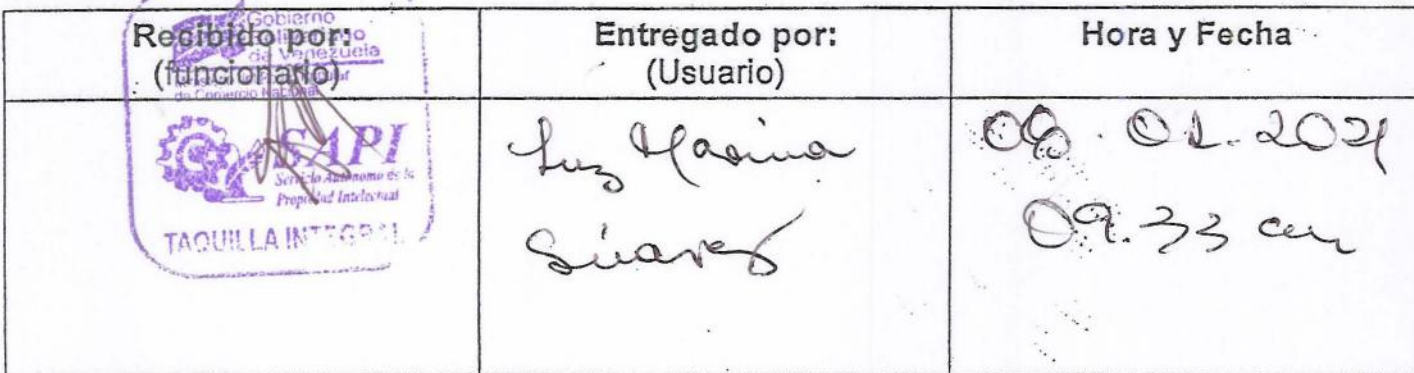 Recibido por:
(funcionario)
Entregado por:
(Usuario)
Hora y Fecha
Gobierno
de Venezuela
de Comercio Nacional
SAPI
Servicio Autónomo de la
Propiedad Intelectual
TAQUILLA INTEGRAL
Luz Marina
Súarez
2021
09.33 am